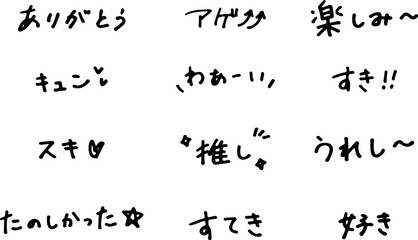 ありがとう アゲ⤴⤴ 楽しみ〜
キュン♡ わぁーい すき!!
スキ♡ 推し うれし〜
たのしかった☆ すてき 好き